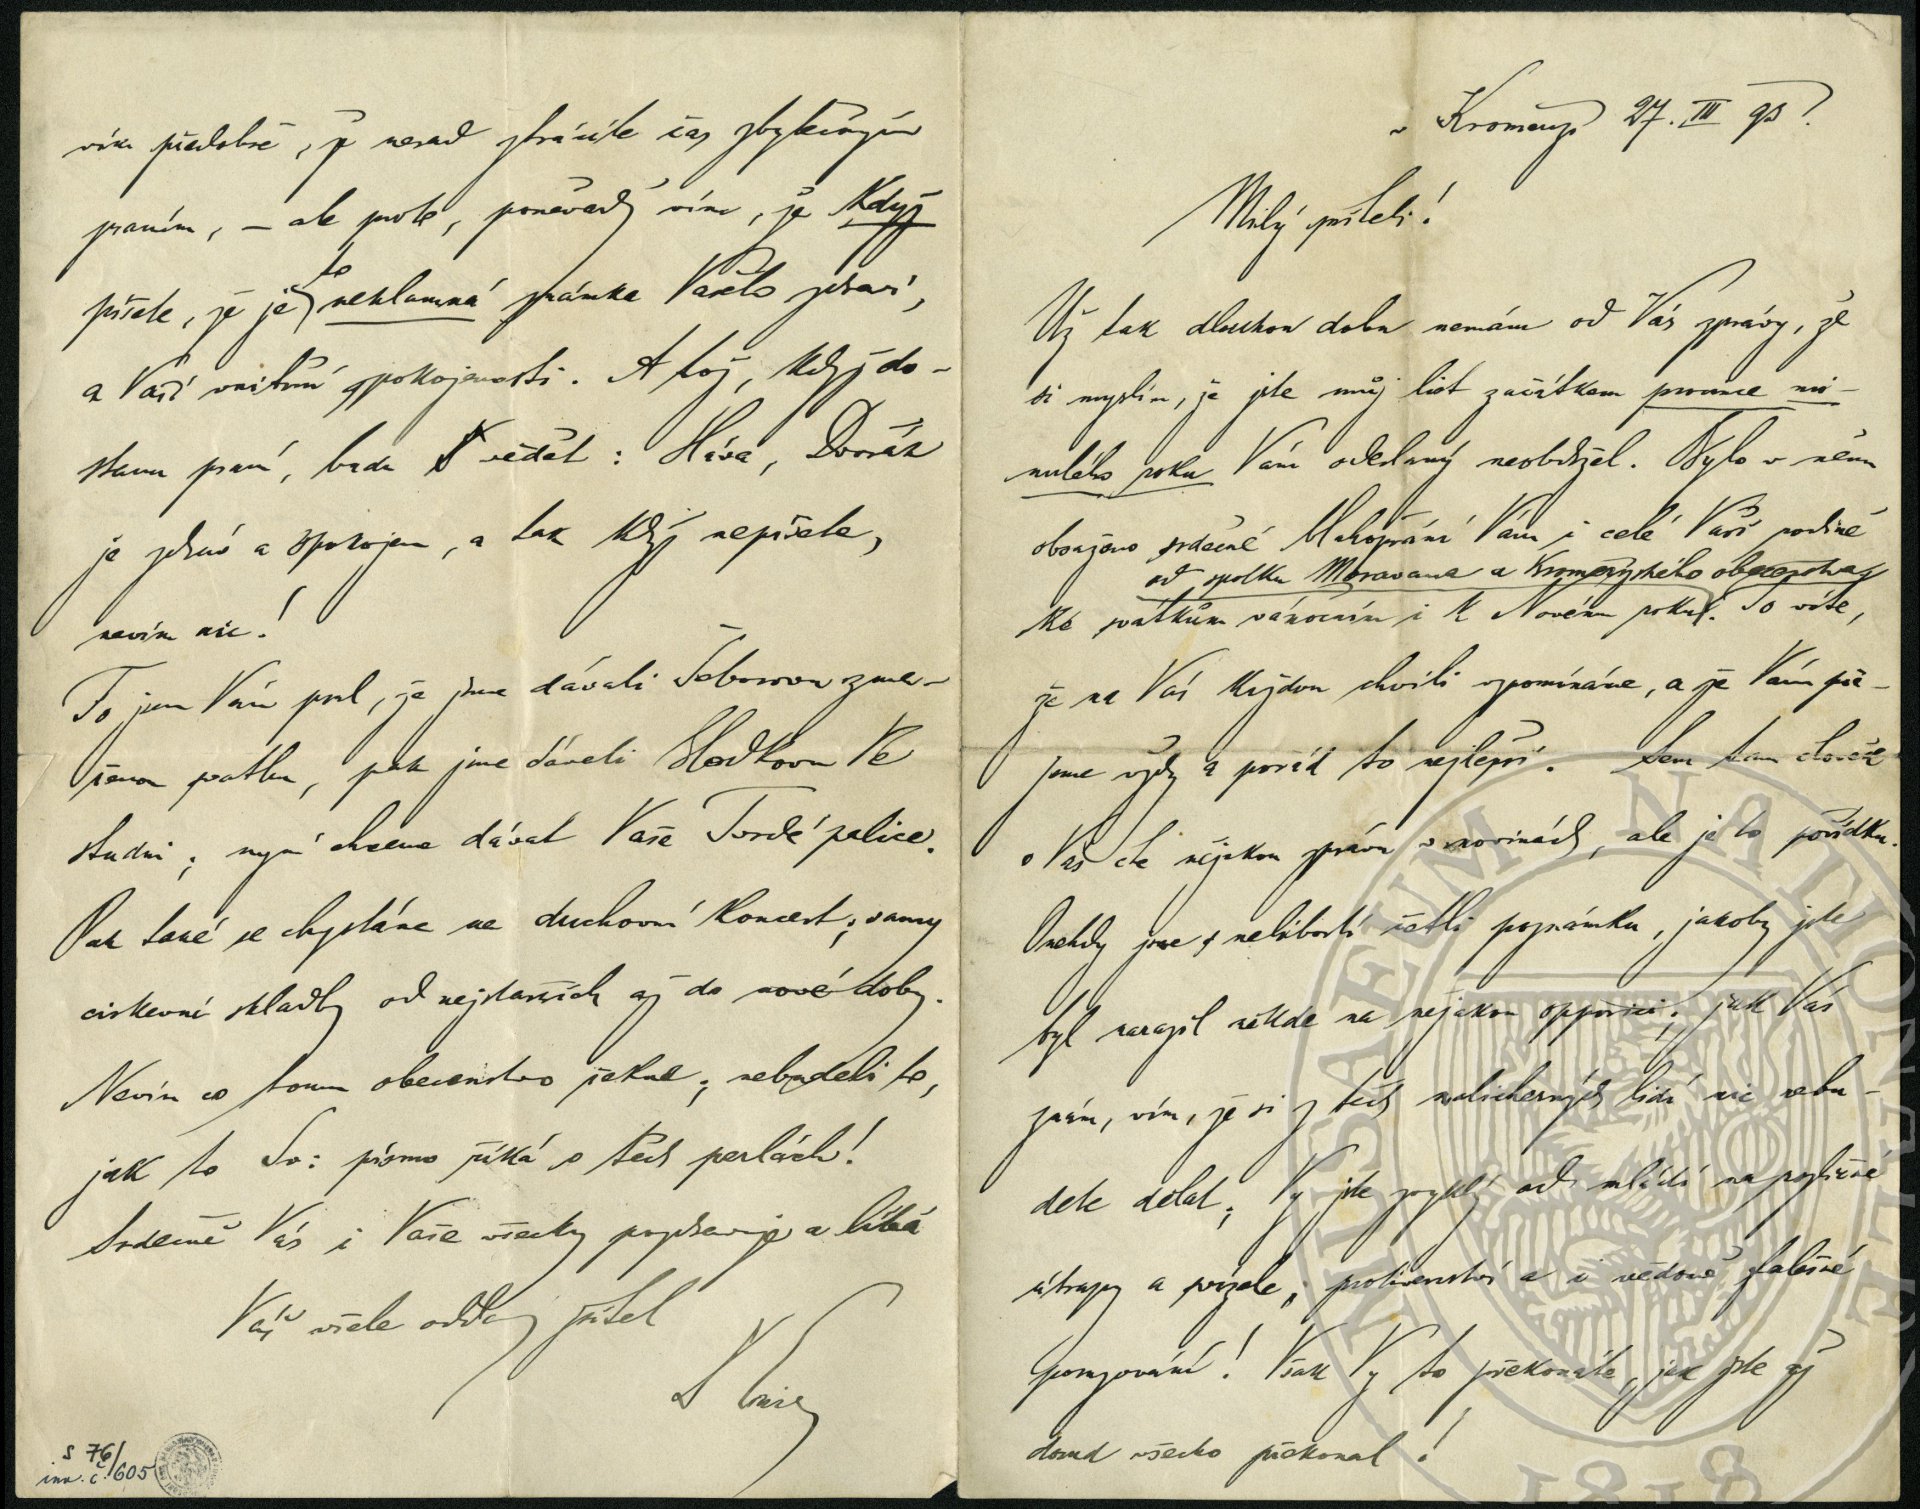 v Kroměříži 27. III 93.
Milý příteli!
Už tak dlouhou dobu nemám od Vás zprávy, že
si myslím, že jste můj list začátkem prosince mi-
nulého roku Vám odeslaný neobdržel. Bylo v něm
obsaženo srdečné blahopřání Vám i celé Vaší rodině
od spolku Moravana a Kroměřížského obecenstva
ke svátkům vánočním i k Novému roku. To víte,
že na Vás každou chvíli vzpomínáme, a že Vám pře-
jeme vždy a pořád to nejlepší. Sem tam člověk
o Vás čte nějakou zprávu v novinách, ale je to pořídku.
Onehdy jsme s nelibostí četli poznámku, jakoby jste
byl narazil někde na nějakou opposici; jak Vás
znám, vím, že si z těch malicherných lidí nic nebu-
dete dělat; Vy jste zvyklý od mládí na rozličné
útrapy a svízele, protivenství a i vědomě falešné
posuzování! Však Vy to překonáte, jak jste až
dosud všecko překonal!
vím předobře, že nerad ztrácíte čas zbytečným
psaním, – ale proto, poněvadž vím, že když
píšete, že je to neklamná známka Vašeho zdraví,
a Vaší vnitřní spokojenosti. A tož, když do-
stanu psaní, budu vědět: Sláva, Dvořák
je zdráv a spokojen, a tak když nepíšete,
nevím nic!
To jsem Vám psal, že jsme dávali Šeborovu zma-
řenou svatbu, pak jsme dávali Blodkovu Ve
studni; nyní chceme dávat Vaše Tvrdé palice.
Pak také se chystáme na duchovní koncert; samy
cirkevní skladby od nejstarších až do nové doby.
Nevím co tomu obecenstvo řekne; nebudeli to,
jak to Sv: písmo říká o těch perlách!
Srdečně Vás i Vaše všecky pozdravuje a líbá
Váš vřele oddaný přítel
S 76/
inv. č. 605
MUSAEUM NATIONALE
1818